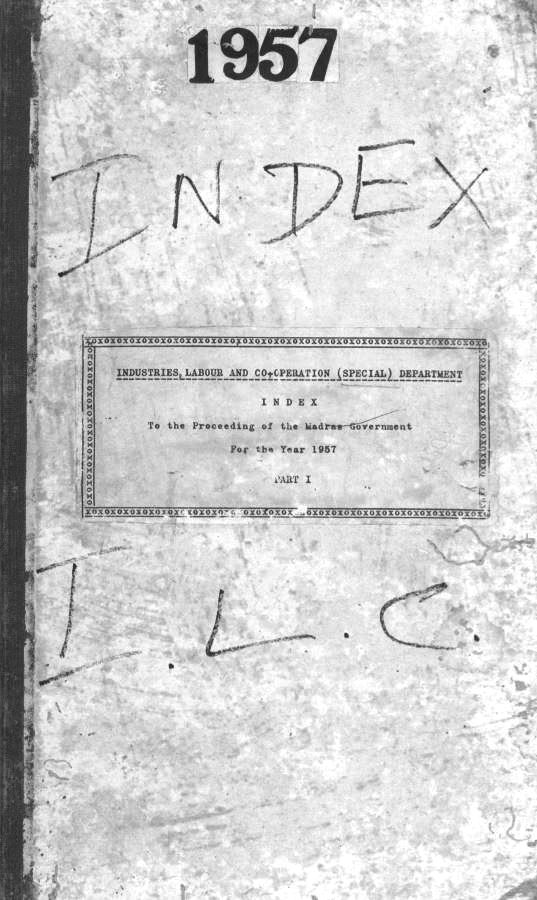 1957
INDEX
INDUSTRIES, LABOUR AND CO-OPERATION (SPECIAL) DEPARTMENT
I N D E X
To the Proceeding of the Madras Government
For the Year 1957
PART I
I. L. C.